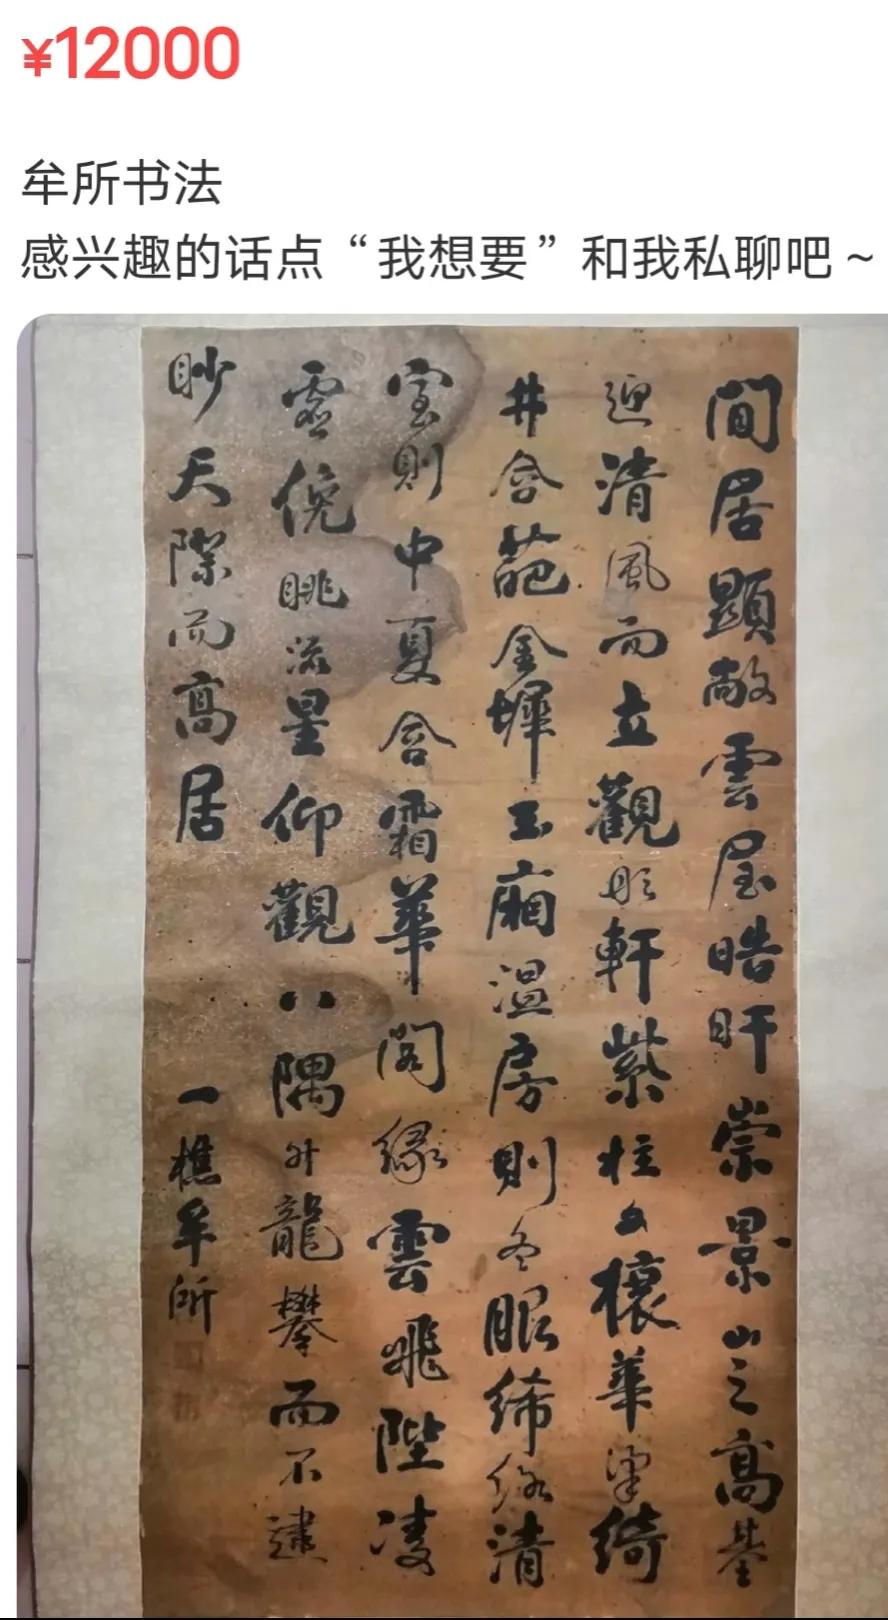 ¥12000
牟所书法
感兴趣的话点“我想要”和我私聊吧~
閒居顯敞雲屋晧旰崇景山之高基
迎清風而立觀彤軒紫柱文榱華梁綺
井含葩金墀玉廂溫房則冬服絺綌清
室則中夏含霜華閣緣雲飛陛凌
虛俛眺流星仰觀八隅升龍攀而不逮
眇天際而高居
一樵牟所